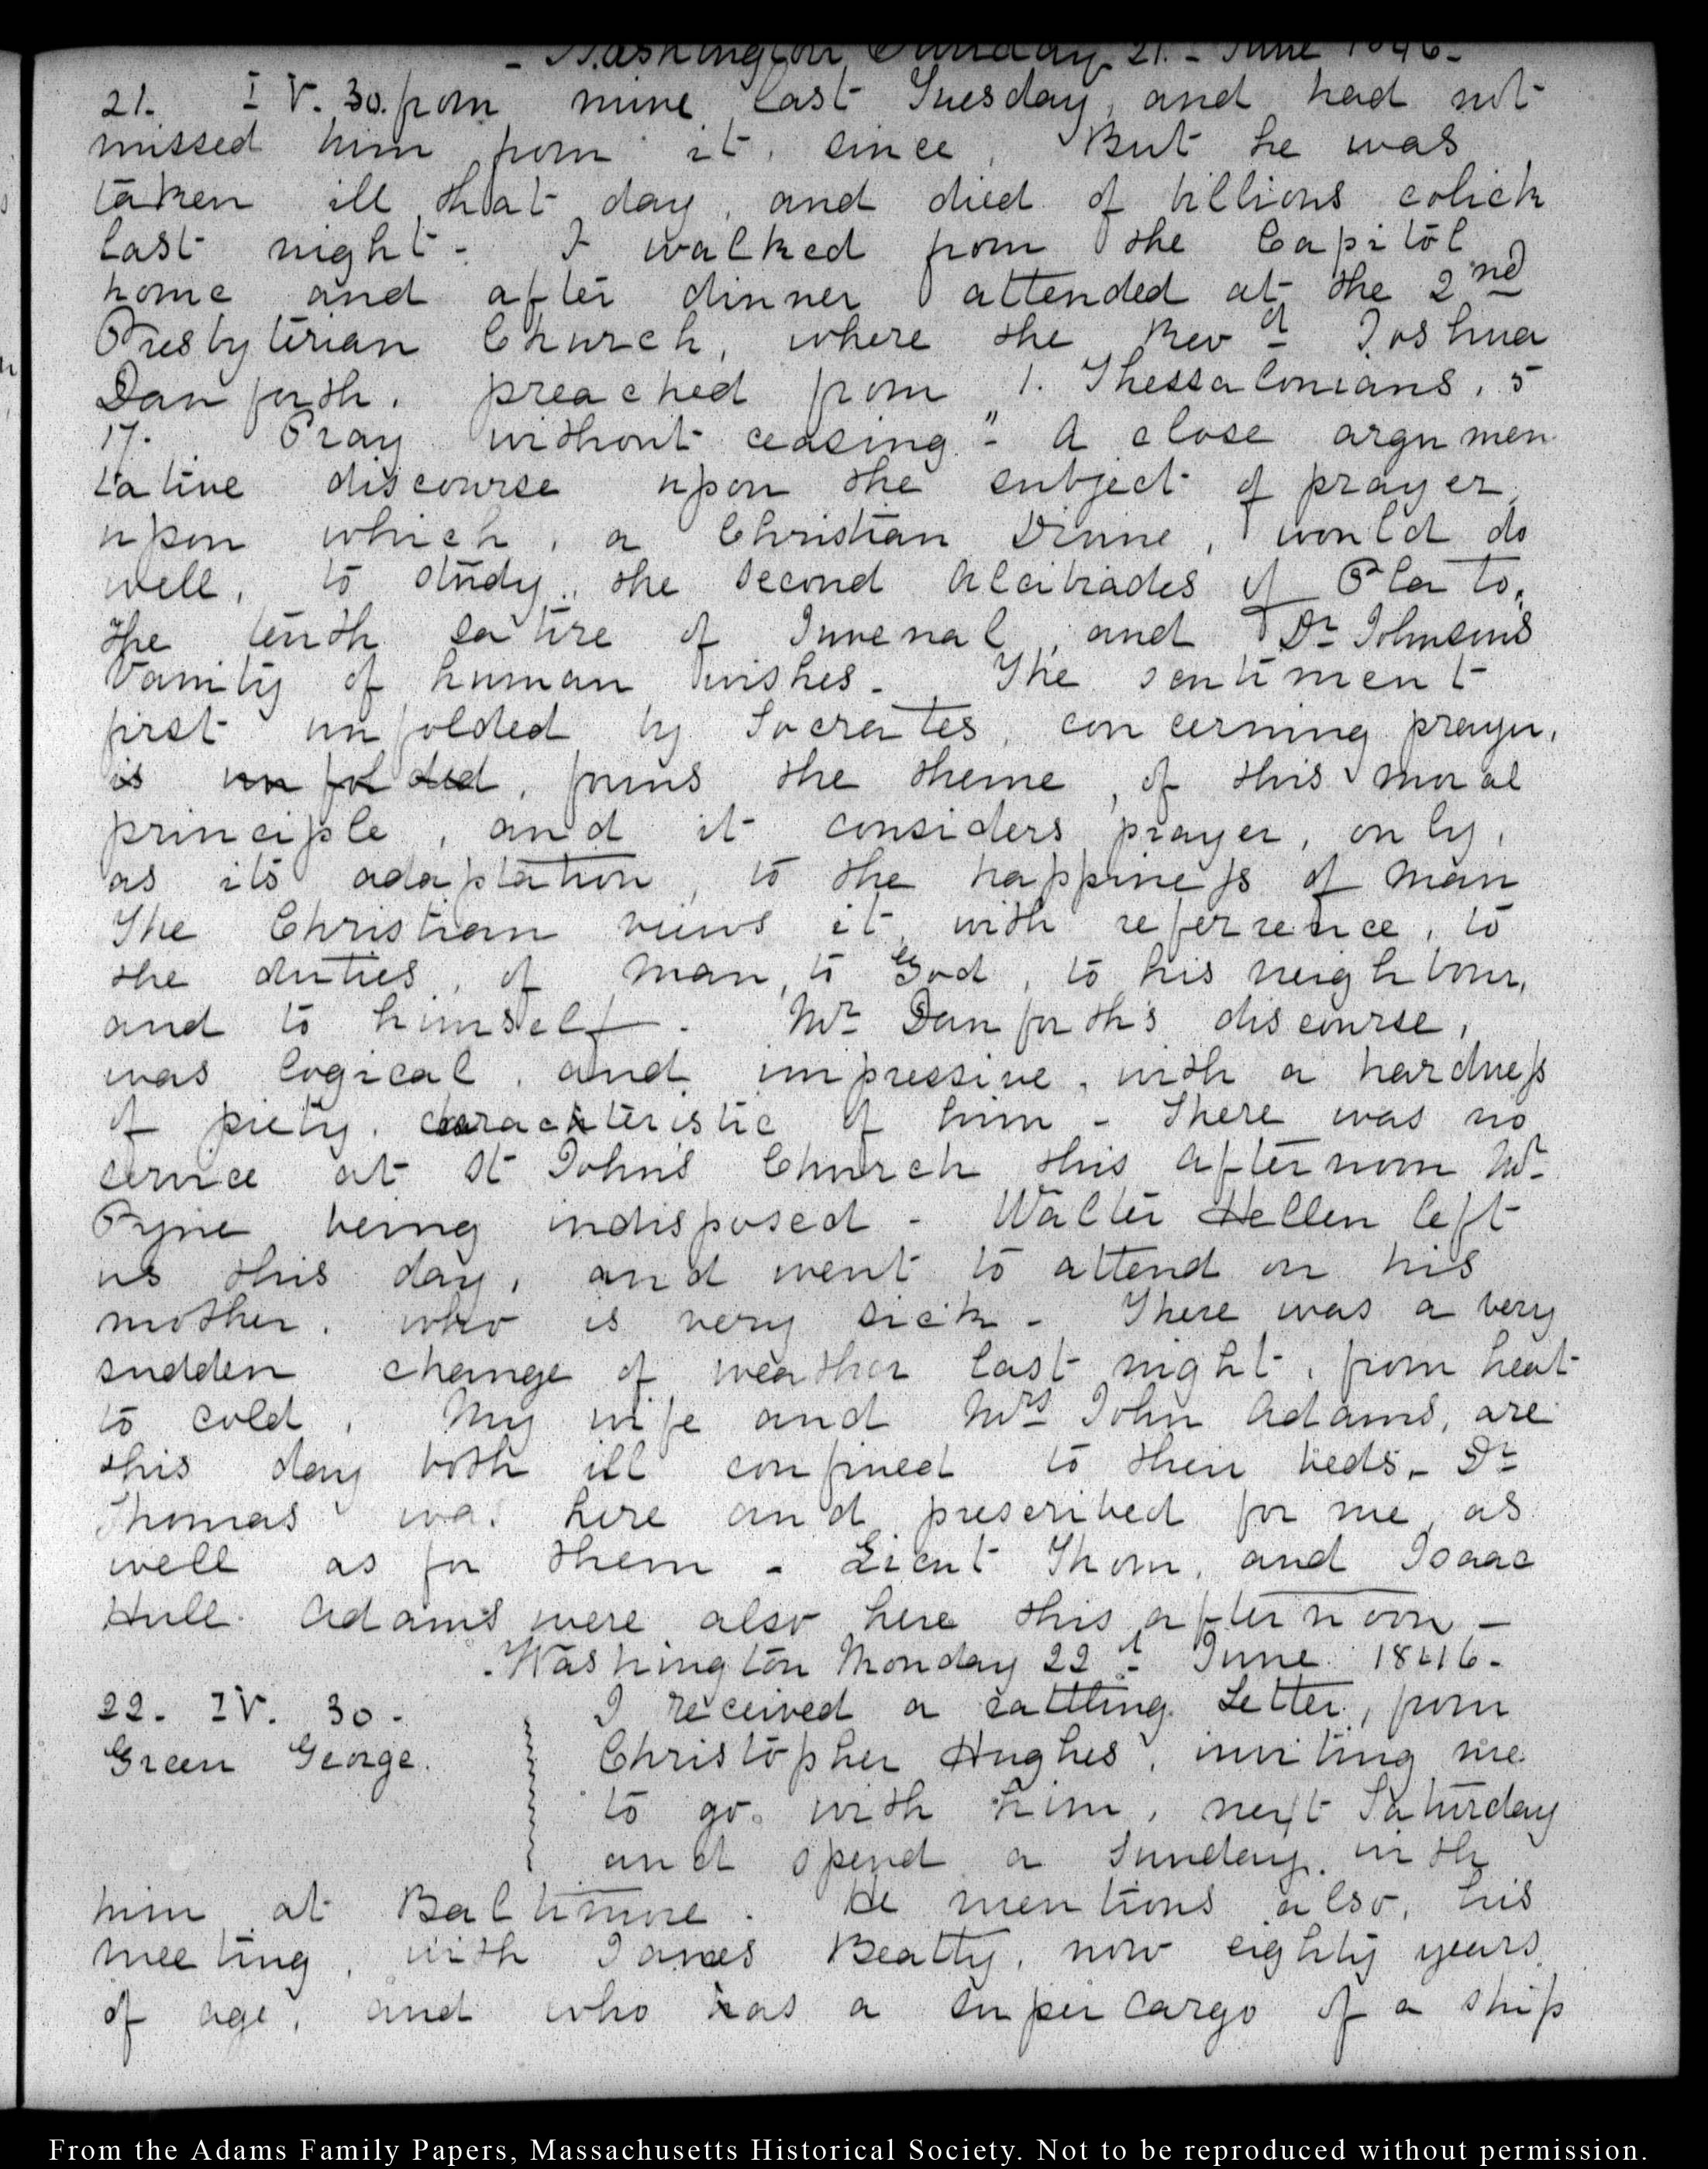 - Washington Sunday 21. - June 1846-
21. IV. 30. from mine last Tuesday, and had not
missed him from it, since, But he was
taken ill that day, and died of billions colick
last night - I walked from the Capitol
home and after dinner attended at the 2nd
Presbyterian Church, where the Revd Joshua
Danforth. preached from 1. Thessalonians, 5
17. Pray without ceasing" - A close argumen
tative discourse upon the subject of prayer,
upon which, a Christian Divine, would do
well, to study, the second Alcibiades of Plato,
the tenth satire of Juvenal, and Dr Johnsons
Vanity of human wishes - The sentiment
first unfolded by Socrates, concerning prayer,
is unfolded, forms the theme, of this moral
principle, and it considers prayer, only,
as its adaptation, to the happiness of man
The Christian views it, with referrence, to
the duties, of man, to God, to his neighbour,
and to himself - Mr Danforth's discourse,
was logical, and impressive, with a hardness
of piety, characteristic of him - There was no
service at St John's Church this afternoon Mr
Pyne being indisposed - Walter Hellen left
us this day, and went to attend on his
mother. who is very sick - There was a very
sudden change of weather last night, from heat
to cold, My wife and Mrs John Adams, are
this day both ill confined to their beds - Dr
Thomas was here and prescribed for me, as
well as for them - Lieut Thom, and Isaac
Hull Adams were also here this afternoon -
- Washington Monday 22d June 1846 -
22. IV. 30. I received a rattling Letter, from
Green George. Christopher Hughes, inviting me
to go with him, next Saturday
and spend a Sunday with
him at Baltimore. He mentions also, his
meeting, with James Beatty, now eighty years
of age, and who was a super cargo of a ship
From the Adams Family Papers, Massachusetts Historical Society. Not to be reproduced without permission.